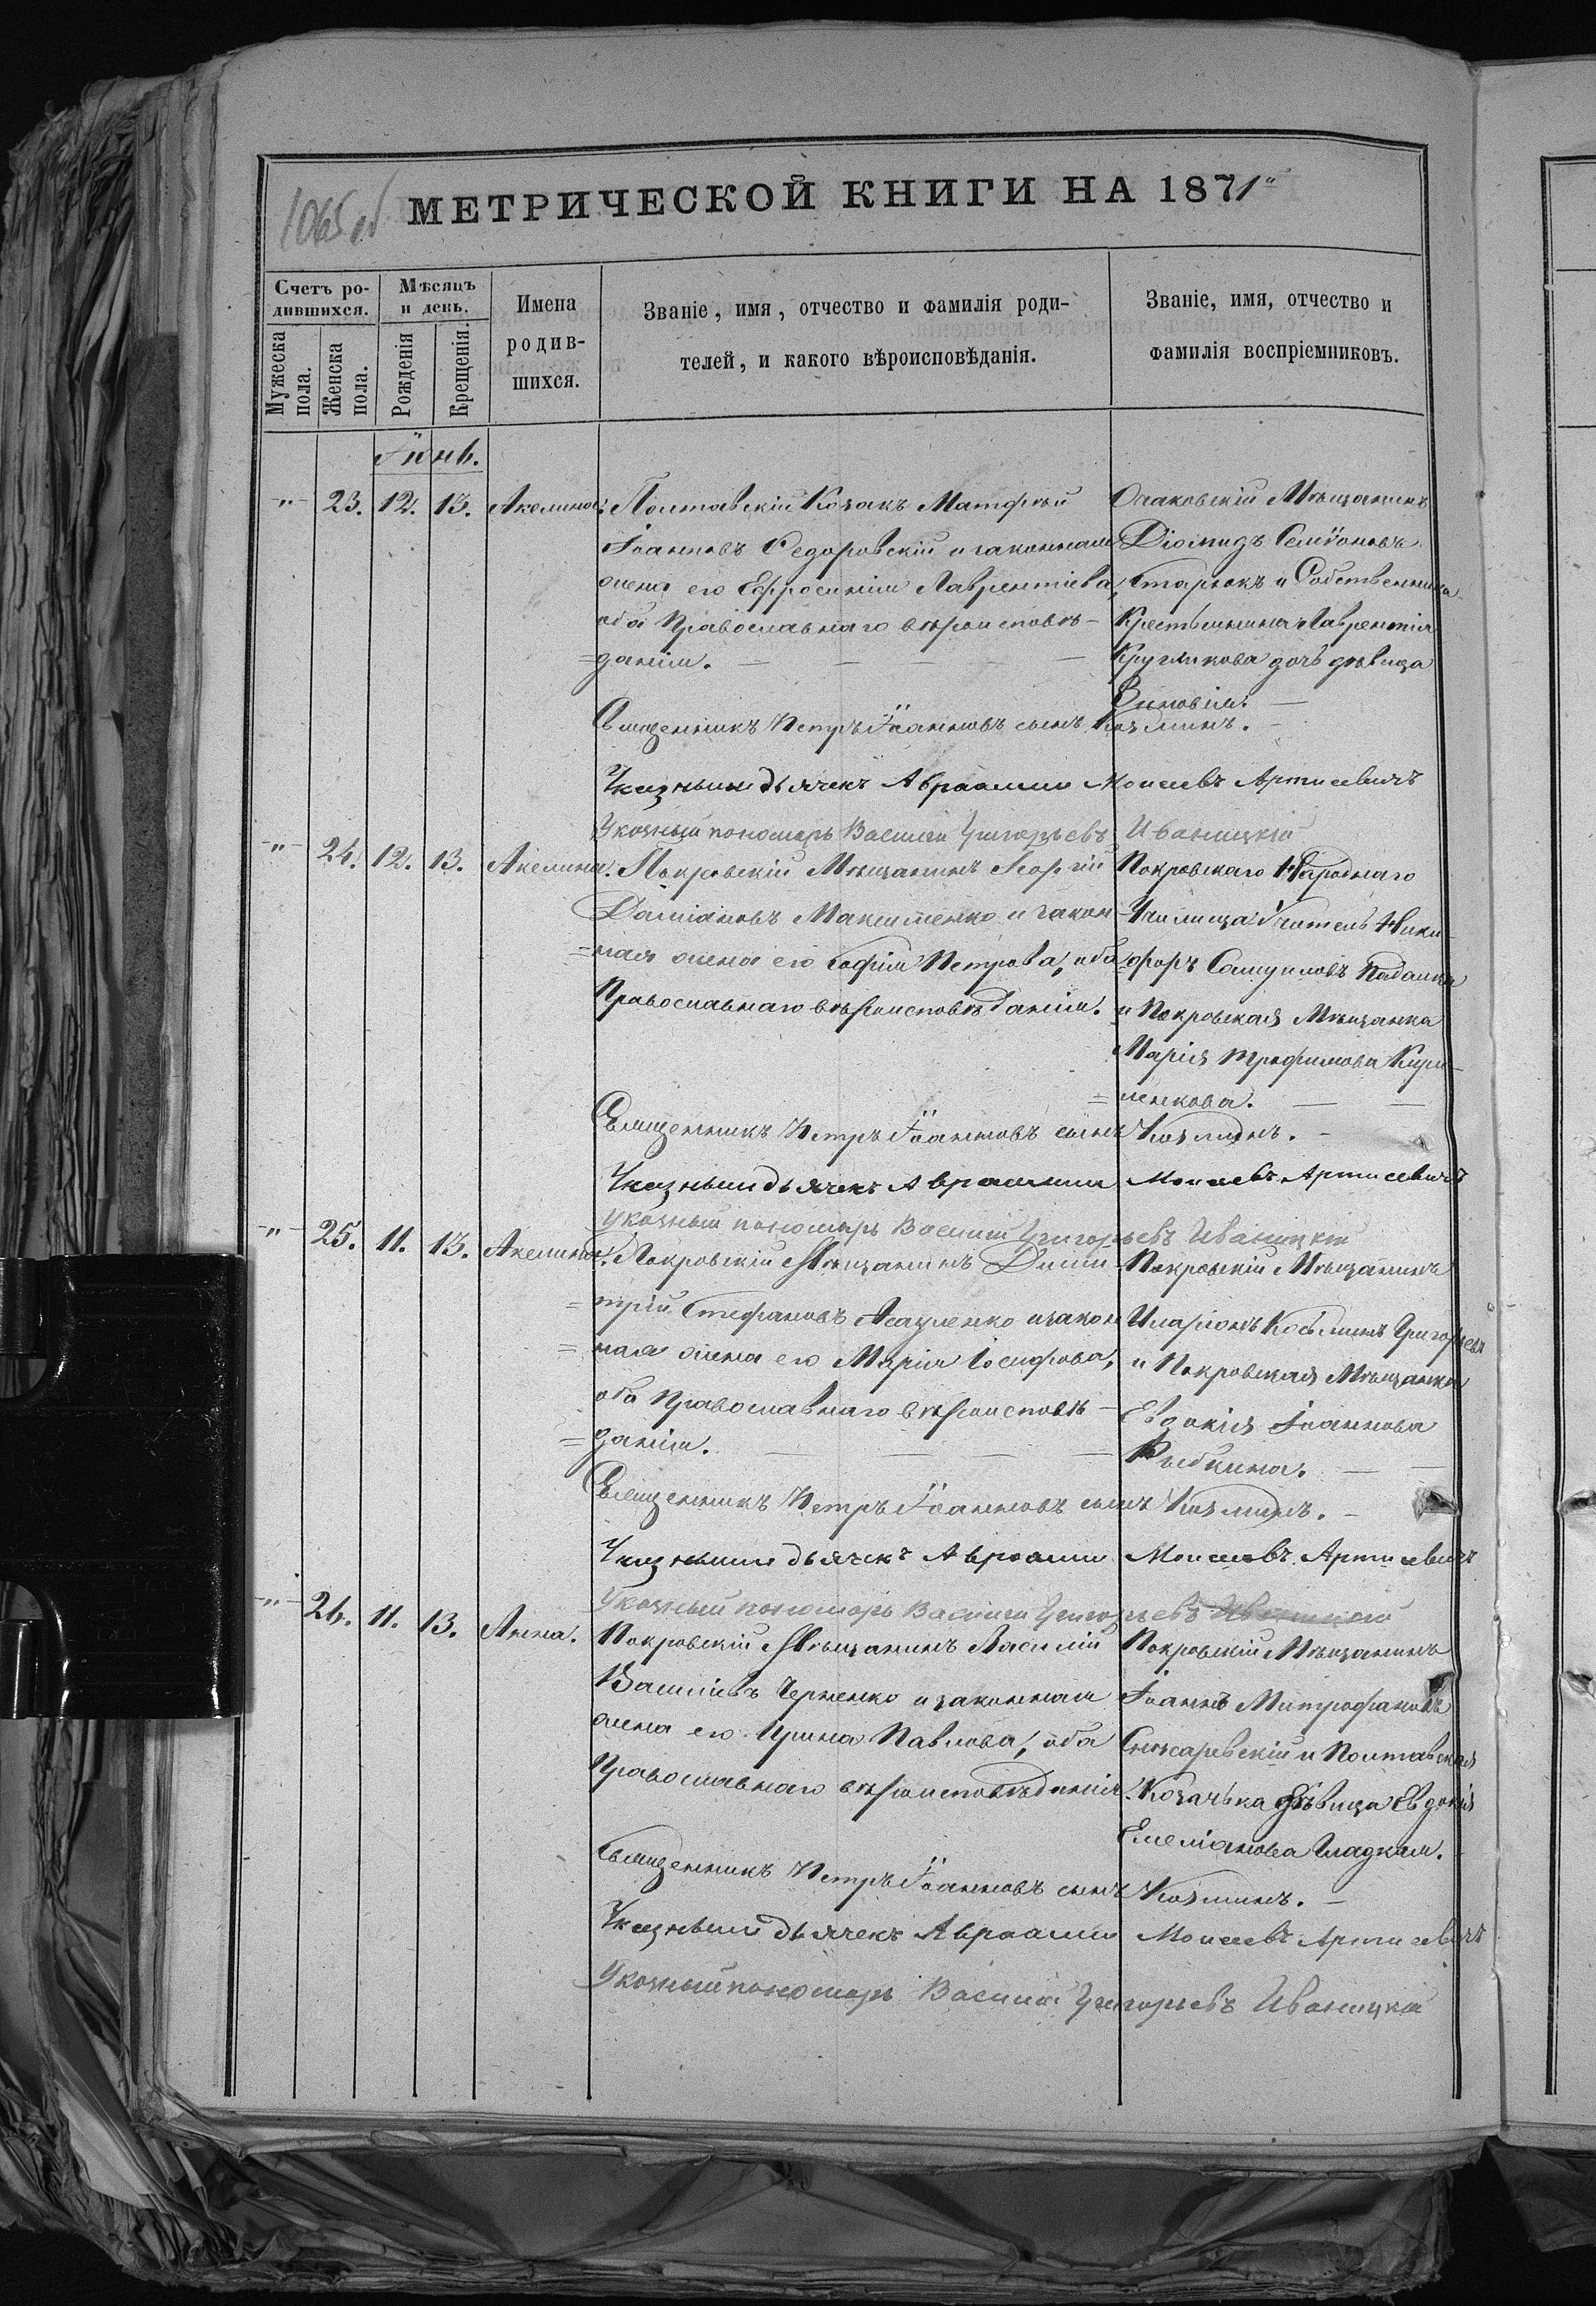 1065 об
МЕТРИЧЕСКОЙ КНИГИ НА 1871
Счетъ ро-
дившихся.
Мѣсяцъ
и день.
Имена
родив-
шихся.
Званіе, имя, отчество и фамилія роди-
телей, и какого вѣроисповѣданія.
Званіе, имя, отчество и
фамилія воспріемниковъ.
Мужеска
пола.
Женска
пола.
Рожденія
Крещенія.
Іюнь.
" 23. 12. 13. Акелина.
Полтавскій Козакъ Матфѣй
Іоанновъ Федоровскій и законная
жена его Ефросинія Лаврентіева,
оба Православнаго вѣроисповѣ-
=данія. —
Очаковскій Мѣщанинъ
Діомидъ Семіоновъ
Старокъ и Собственника
Крестьянина Лаврентія
Кругликова дочь дѣвица
Зиновія. —
Священникъ Петръ Іоанновъ сынъ Козминъ. —
Указный дьячекъ Авраамій Моисеевъ Артисевичъ
Указный пономарь Василій Григорьевъ Иваницкій
" 24. 12. 13. Акелина.
Покровскій Мѣщанинъ Георгій
Даміановъ Максименко и закон-
=ная жена его Софія Петрова, оба
Православнаго вѣроисповѣданія.
Покровскаго Народнаго
Училища Учитель Ники-
форъ Самуиловъ Падалка
и Покровская Мѣщанка
Марія Трофимова Кири-
=ленкова. —
Священникъ Петръ Іоанновъ сынъ Козминъ. —
Указный дьячекъ Авраамій Моисеевъ Артисевичъ
Указный пономарь Василій Григорьевъ Иваницкій
" 25. 11. 13. Акелина.
Покровскій Мѣщанинъ Дими-
=трій Стефановъ Асауленко и закон
=ная жена его Марія Іосифова,
оба Православнаго вѣроисповѣ-
=данія. —
Покровскій Мѣщанинъ
Иларіонъ Козминъ Григорьевъ
и Покровская Мѣщанка
Евдокія Іоаннова
Рыбкина. —
Священникъ Петръ Іоанновъ сынъ Козминъ. —
Указный дьячекъ Авраамій Моисеевъ Артисевичъ
Указный пономарь Василій Григорьевъ Иваницкій
" 26. 11. 13. Анна.
Покровскій Мѣщанинъ Василій
Василіевъ Черненко и законная
жена его Ирина Павлова, оба
Православнаго вѣроисповѣданія.
Покровскій Мѣщанинъ
Іоаннъ Митрофановъ
и Полтавская
Козачька дѣвица Евдокія
Емеліанова Гладкая.
Священникъ Петръ Іоанновъ сынъ Козминъ. —
Указный дьячекъ Авраамій Моисеевъ Артисевичъ
Указный пономарь Василій Григорьевъ Иваницкій